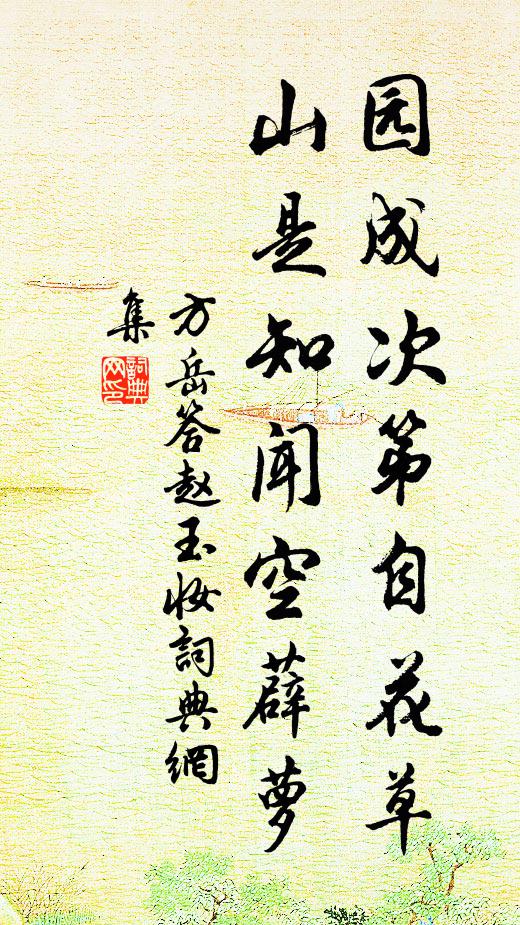 园成次第自花草
山是知闻空薜萝
方岳答赵玉妆詞典網
集
詞典
网印